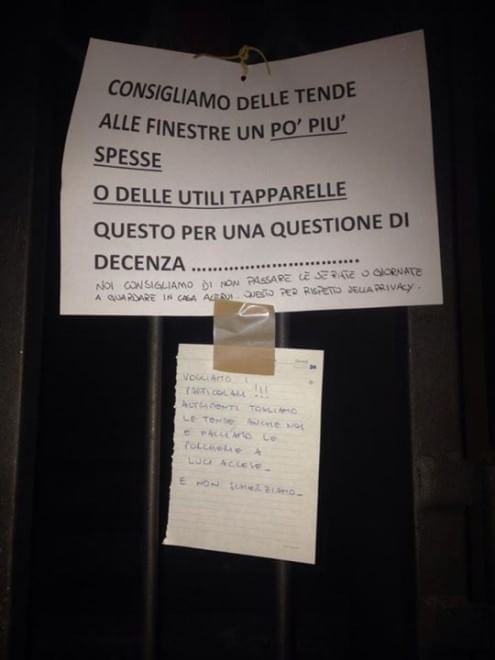 CONSIGLIAMO DELLE TENDE
ALLE FINESTRE UN PO' PIU'
SPESSE
O DELLE UTILI TAPPARELLE
QUESTO PER UNA QUESTIONE DI
DECENZA .................................
NOI CONSIGLIAMO DI NON PASSARE LE SERATE O GIORNATE
A GUARDARE IN CASA ALTRUI. QUESTO PER RISPETTO DELLA PRIVACY.
VOGLIAMO I
PARTICOLARI !!!
ALTRIMENTI TOGLIAMO
LE TENDE ANCHE NOI
E FACCIAMO LE
PORCHERIE A
LUCI ACCESE_
E NON SCHERZIAMO_